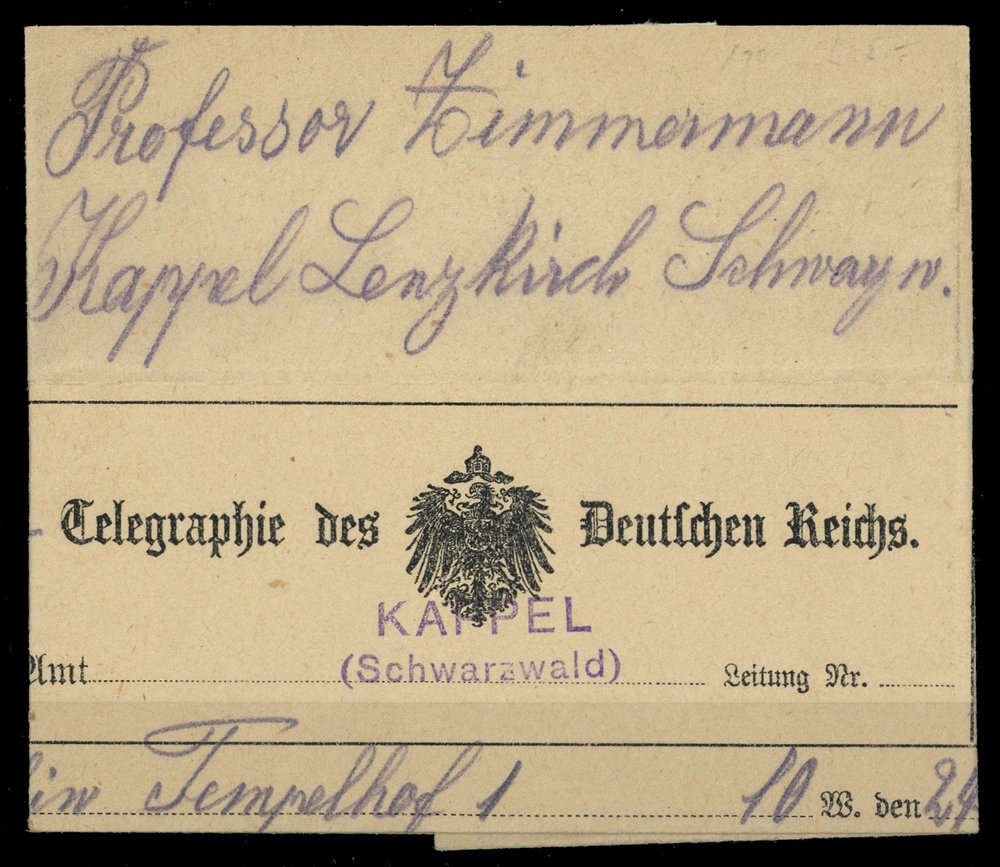 Professor Zimmermann
Kappel Lenzkirch Schwarzw.
Telegraphie des Deutschen Reichs.
KAPPEL
(Schwarzwald)
Amt Leitung Nr.
lin Tempelhof 1 10 W. den 24